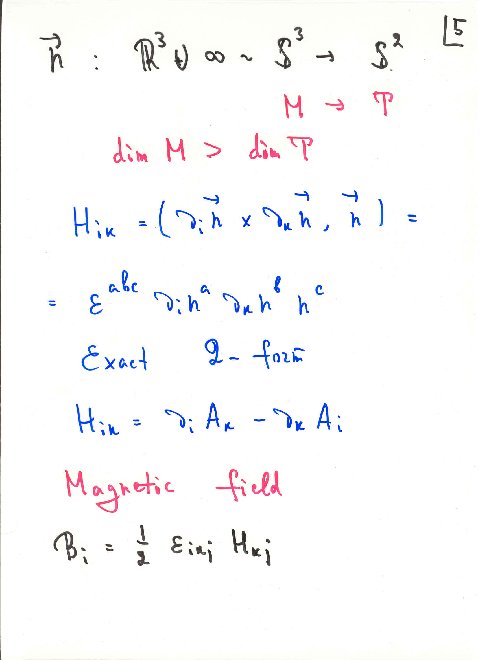 5
n⃗ : ℝ³ ∪ ∞ ~ S³ → S²
M → T
dim M > dim T
Hᵢₖ = (∂ᵢn⃗ × ∂ₖn⃗, n⃗) =
= εᵃᵇᶜ ∂ᵢnᵃ ∂ₖnᵇ nᶜ
Exact 2-form
Hᵢₖ = ∂ᵢAₖ − ∂ₖAᵢ
Magnetic field
Bᵢ = 1/2 εᵢₖⱼ Hₖⱼ